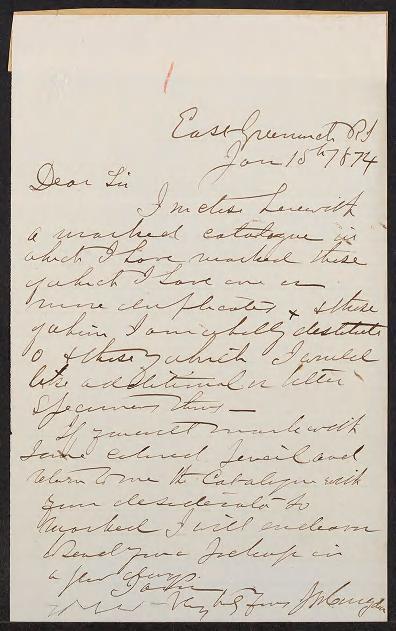 East Greenwich RI
Jan 15th 1874
Dear Sir
I inclose herewith
a marked catalogue in
which I have marked those
of which I have one or
more duplicates x & those
of whim I am wholly destitute
o & those of which I would
like additional or better
specimens thus —
If you will mark with
some colored pencil and
return to me the Catalogue with
your desiderata so
marked I will endeavor
to send you a package in
a few days.
Very truly yours J W Congdon